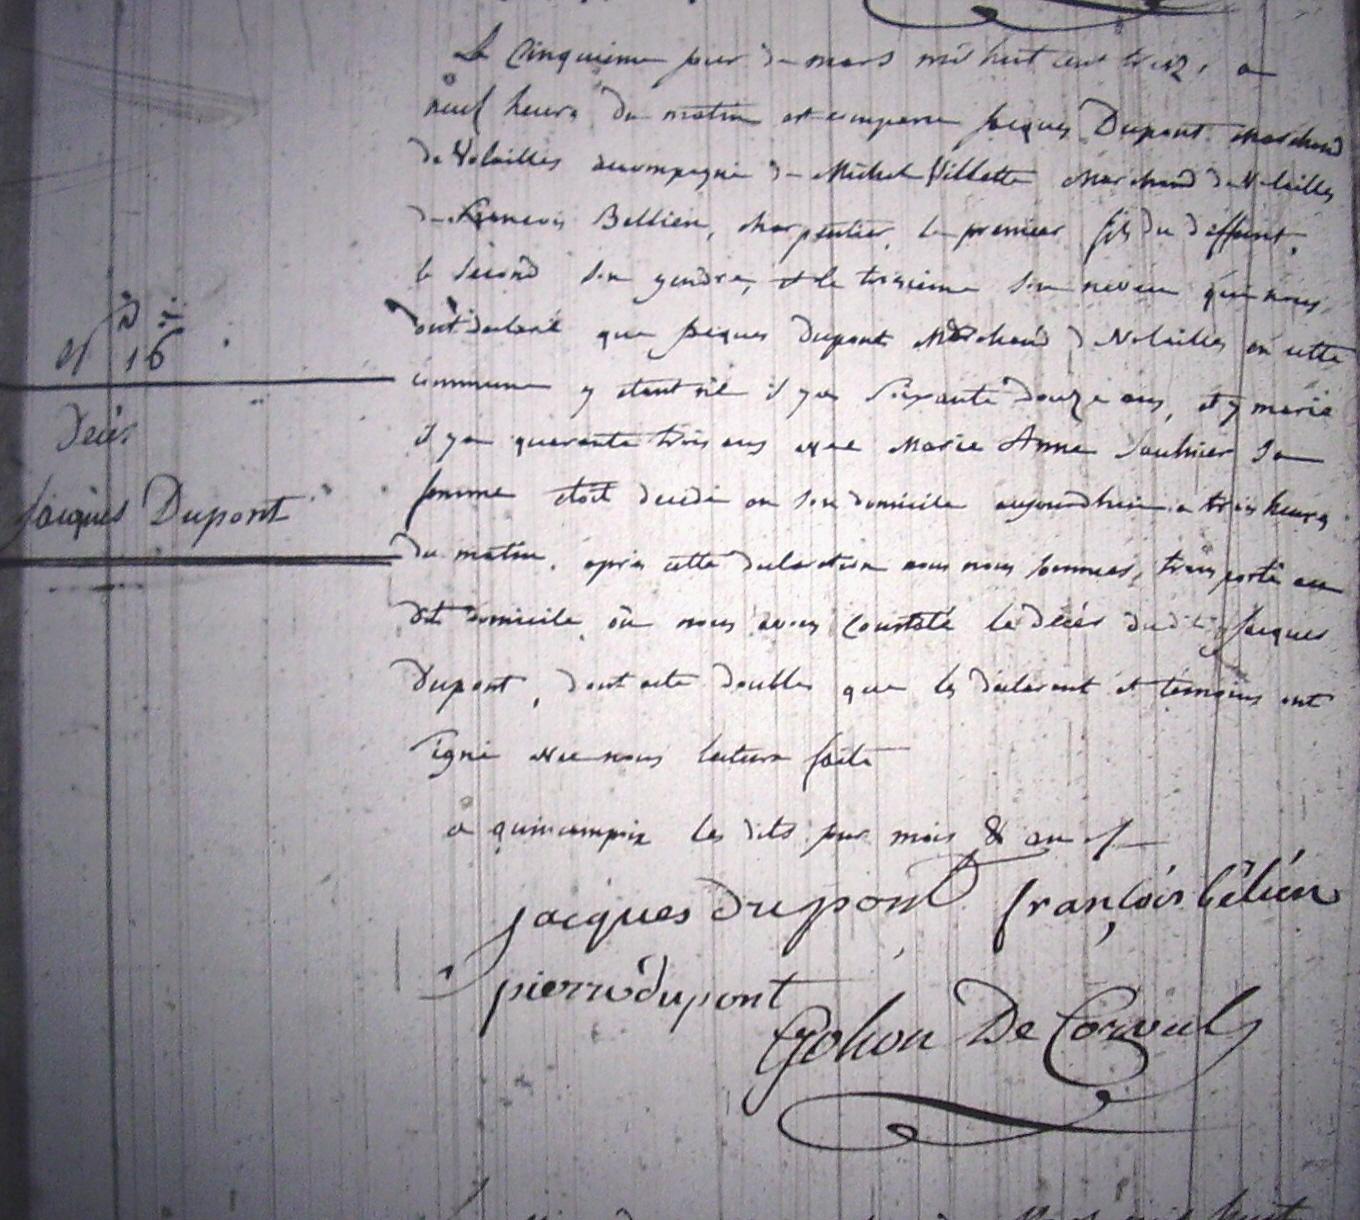 Le Cinquieme jour de mars mil huit cent treize, a
neuf heures du matin est comparu Jacques Dupont Marchand
de Volailles accompagné de Michel Villette Marchand de Volailles
de Francois Bellien, charpentier, le premier fils du deffunt,
le second son gendre, et le troisieme son neveu qui nous
ont declaré que Jacques Dupont Marchand de Volailles en cette
commune y etant né il y a Soixante douze ans, et y marié
il y a quarante trois ans avec Marie Anne Saulnier sa
femme etoit decedé en son domicile aujourdhui a trois heures
du matin, apres cette declaration nous nous sommes, transporté au
dit domicile, où nous avons constaté le décés dudit Jacques
Dupont, dont acte doubles que les déclarant et temoins ont
signé avec nous lecture faite
a quincampoix les dits jour mois & an
n° 16
Décès
Jacques Dupont
jacques dupont françois bélién
pierre dupont
Gohon De Corval